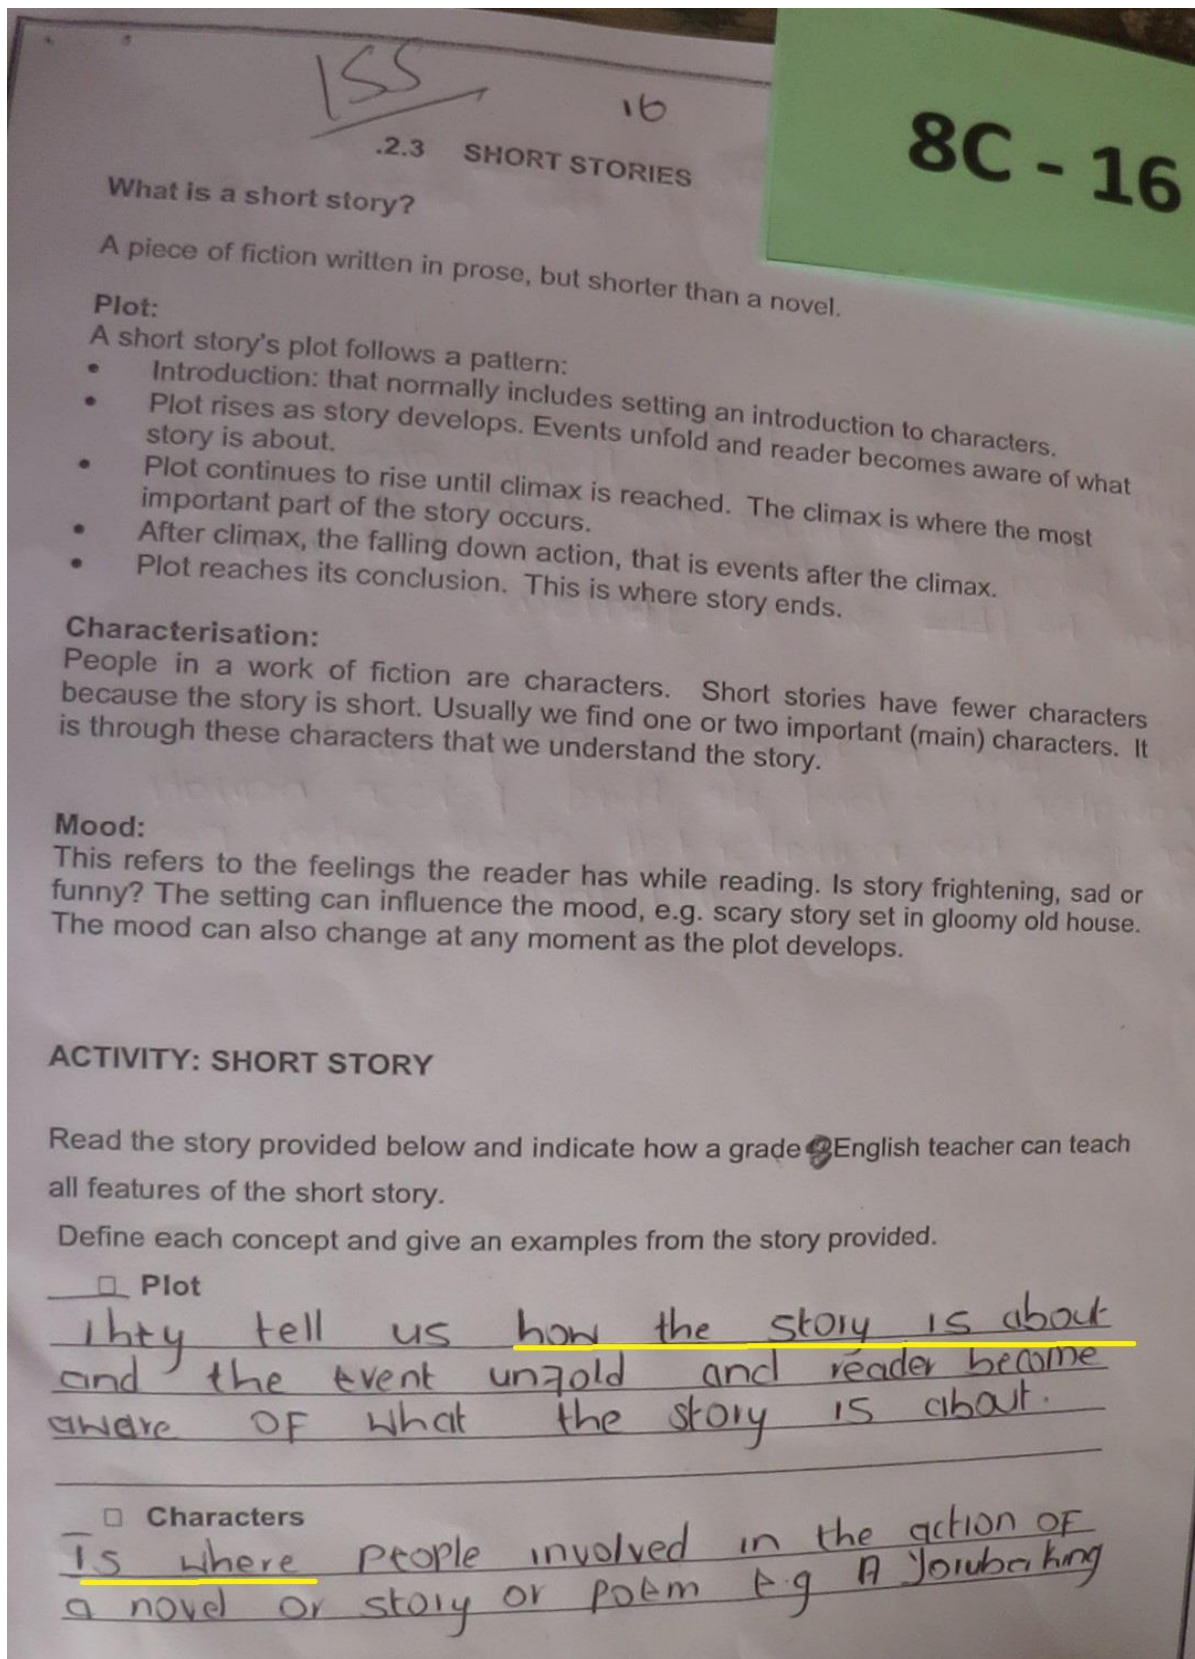 155
16
8C - 16
.2.3 SHORT STORIES
What is a short story?
A piece of fiction written in prose, but shorter than a novel.
Plot:
A short story's plot follows a pattern:
• Introduction: that normally includes setting an introduction to characters.
• Plot rises as story develops. Events unfold and reader becomes aware of what
story is about.
• Plot continues to rise until climax is reached. The climax is where the most
important part of the story occurs.
• After climax, the falling down action, that is events after the climax.
• Plot reaches its conclusion. This is where story ends.
Characterisation:
People in a work of fiction are characters. Short stories have fewer characters
because the story is short. Usually we find one or two important (main) characters. It
is through these characters that we understand the story.
Mood:
This refers to the feelings the reader has while reading. Is story frightening, sad or
funny? The setting can influence the mood, e.g. scary story set in gloomy old house.
The mood can also change at any moment as the plot develops.
ACTIVITY: SHORT STORY
Read the story provided below and indicate how a grade 8 English teacher can teach
all features of the short story.
Define each concept and give an examples from the story provided.
□ Plot
They tell us how the story is about
and the event unfold and reader become
aware of what the story is about.
□ Characters
Is where people involved in the action of
a novel or story or poem e.g A Yoruba king